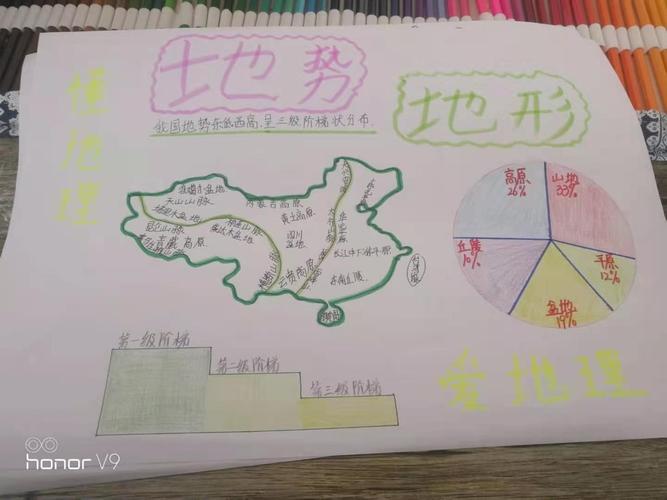 地势
地形
懂地理
我国地势东低西高，呈三级阶梯状分布.
准噶尔盆地
天山山脉
塔里木盆地
昆仑山脉
青藏高原
柴达木盆地
内蒙古高原
黄土高原
四川
盆地
云贵高原
长江中下游平原
东南丘陵
高原
26%
山地
33%
丘陵
10%
平原
12%
盆地
19%
第一级阶梯
第二级阶梯
第三级阶梯
爱地理
honor V9